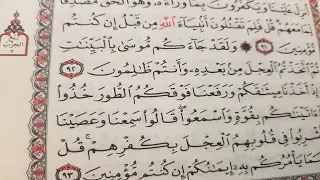 أُنزِلَ عَلَيْنَا وَيَكْفُرُونَ بِمَا وَرَآءَهُۥ وَهُوَ ٱلْحَقُّ مُصَدِّقًا
لِّمَا مَعَهُمْ ۗ قُلْ فَلِمَ تَقْتُلُونَ أَنۢبِيَآءَ ٱللَّهِ مِن قَبْلُ إِن كُنتُم
مُّؤْمِنِينَ ٩١ وَلَقَدْ جَآءَكُم مُّوسَىٰ بِٱلْبَيِّنَٰتِ
ثُمَّ ٱتَّخَذْتُمُ ٱلْعِجْلَ مِنۢ بَعْدِهِۦ وَأَنتُمْ ظَٰلِمُونَ ٩٢
وَإِذْ أَخَذْنَا مِيثَٰقَكُمْ وَرَفَعْنَا فَوْقَكُمُ ٱلطُّورَ خُذُوا۟
مَآ ءَاتَيْنَٰكُم بِقُوَّةٍ وَٱسْمَعُوا۟ ۖ قَالُوا۟ سَمِعْنَا وَعَصَيْنَا
وَأُشْرِبُوا۟ فِى قُلُوبِهِمُ ٱلْعِجْلَ بِكُفْرِهِمْ ۚ قُلْ
بِئْسَمَا يَأْمُرُكُم بِهِۦٓ إِيمَٰنُكُمْ إِن كُنتُم مُّؤْمِنِينَ ٩٣